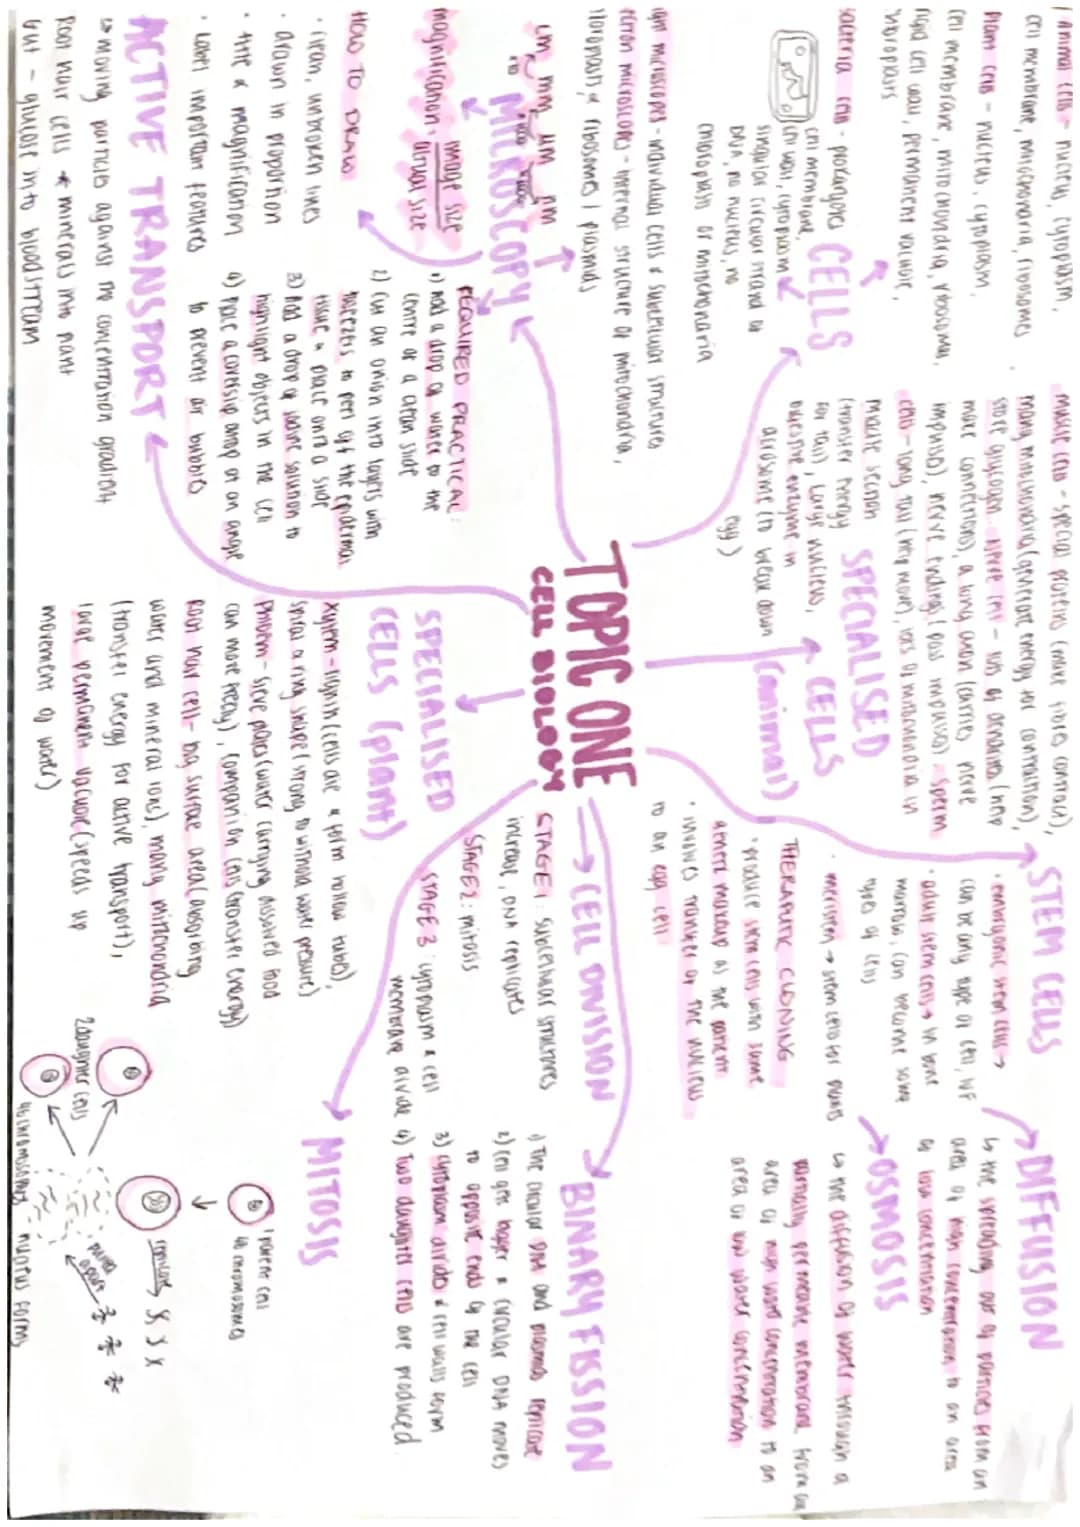 TOPIC ONE
CELL BIOLOGY
CELLS
Animal cells - nucleus, cytoplasm,
cell membrane, mitochondria, ribosomes
Plant cells - nucleus, cytoplasm,
cell membrane, mitochondria, ribosomes,
rigid cell wall, permanent vacuole,
chloroplasts
Bacteria cells - prokaryotes
cell membrane,
cell wall, cytoplasm
singular circular strand of
DNA, no nucleus, no
chloroplasts or mitochondria
SPECIALISED
CELLS
(animal)
muscle cells - special proteins (make fibres contract),
many mitochondria (generate energy for contraction),
store glycogen. nerve cell - lots of dendrites (help
make connections), a long axon (carries nerve
impulse), nerve endings (pass impulses) - sperm
cells - long tail (help move), lots of mitochondria in
middle section
(transfer energy
for tail), large nucleus,
digestive enzyme in
acrosome (to break down
egg)
STEM CELLS
· embryonic stem cells →
can be any type of cell, IVF
· adult stem cells → in bone
marrow, can become some
types of cells
· meristem → stem cells for plants
THERAPUTIC CLONING
· produce stem cells with same
genetic makeup as the patient
· involves transfer of the nucleus
to an egg cell
DIFFUSION
↳ the spreading out of particles from an
area of high concentration to an area
of low concentration
OSMOSIS
↳ the diffusion of water through a
partially permeable membrane from an
area of high water concentration to an
area of low water concentration
MICROSCOPY
light microscopes - individual cells & subcellular structures
electron microscopes - internal structure of mitochondria,
chloroplasts & ribosomes / plasmids
cm mm um nm
×10 ×1000
magnification = image size
actual size
HOW TO DRAW
· clean, unbroken lines
· drawn in proportion
· title & magnification
· label important features
REQUIRED PRACTICAL:
1) Add a drop of water to the
centre of a clean slide
2) Cut an onion into layers with
tweezers to peel off the epidermal
tissue & place onto a slide
3) Add a drop of iodine solution to
highlight objects in the cell
4) Place a coverslip drop at an angle
to prevent air bubbles
ACTIVE TRANSPORT
↳ moving particles against the concentration gradient
Root hair cells → minerals into plant
Gut - glucose into bloodstream
SPECIALISED
CELLS (plant)
Xylem - lignin (cells die & form hollow tubes),
spiral & ring shape (strong to withstand water pressure)
Phloem - sieve plates (water carrying dissolved food
can move freely), companion cells (transfer energy)
Root hair cell - big surface area (absorbing
water and mineral ions), many mitochondria
(transfer energy for active transport),
large permanent vacuole (speeds up
movement of water)
→ CELL DIVISION
STAGE 1: subcellular structures
increase, DNA replicates
STAGE 2: mitosis
STAGE 3: cytoplasm & cell
membrane divide
BINARY FISSION
1) The circular DNA and plasmids replicate
2) Cell gets bigger & circular DNA moves
to opposite ends of the cell
3) cytoplasm divides & cell walls form
4) Two daughter cells are produced
MITOSIS
1 parent cell
46 chromosomes
replicate
pulled
apart
nucleus forms
2 daughter cells
46 chromosomes